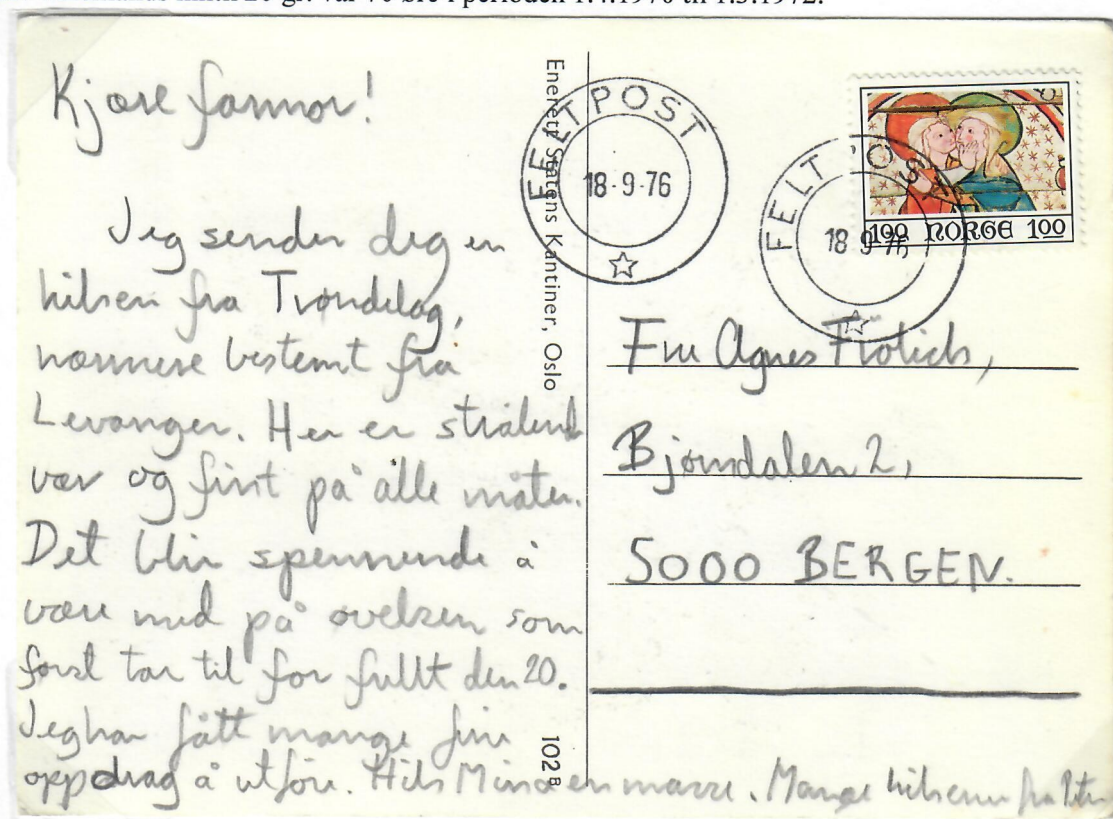 Kjære farmor!
Jeg sender deg en
hilsen fra Trøndelag,
nærmere bestemt fra
Levanger. Her er strålende
vær og fint på alle måter.
Det blir spennende å
være med på øvelsen som
først tar til for fullt den 20.
Jeg har fått mange fine
oppdrag å utføre. Hils en masse. Mange hilsener fra
Enerett: Statens Kantiner, Oslo
102 B
FELTPOST
18-9-76
FELTPOST
18 9 76
1,00 NORGE 1,00
Fru Agnes
Bjørndalen 2,
5000 BERGEN.